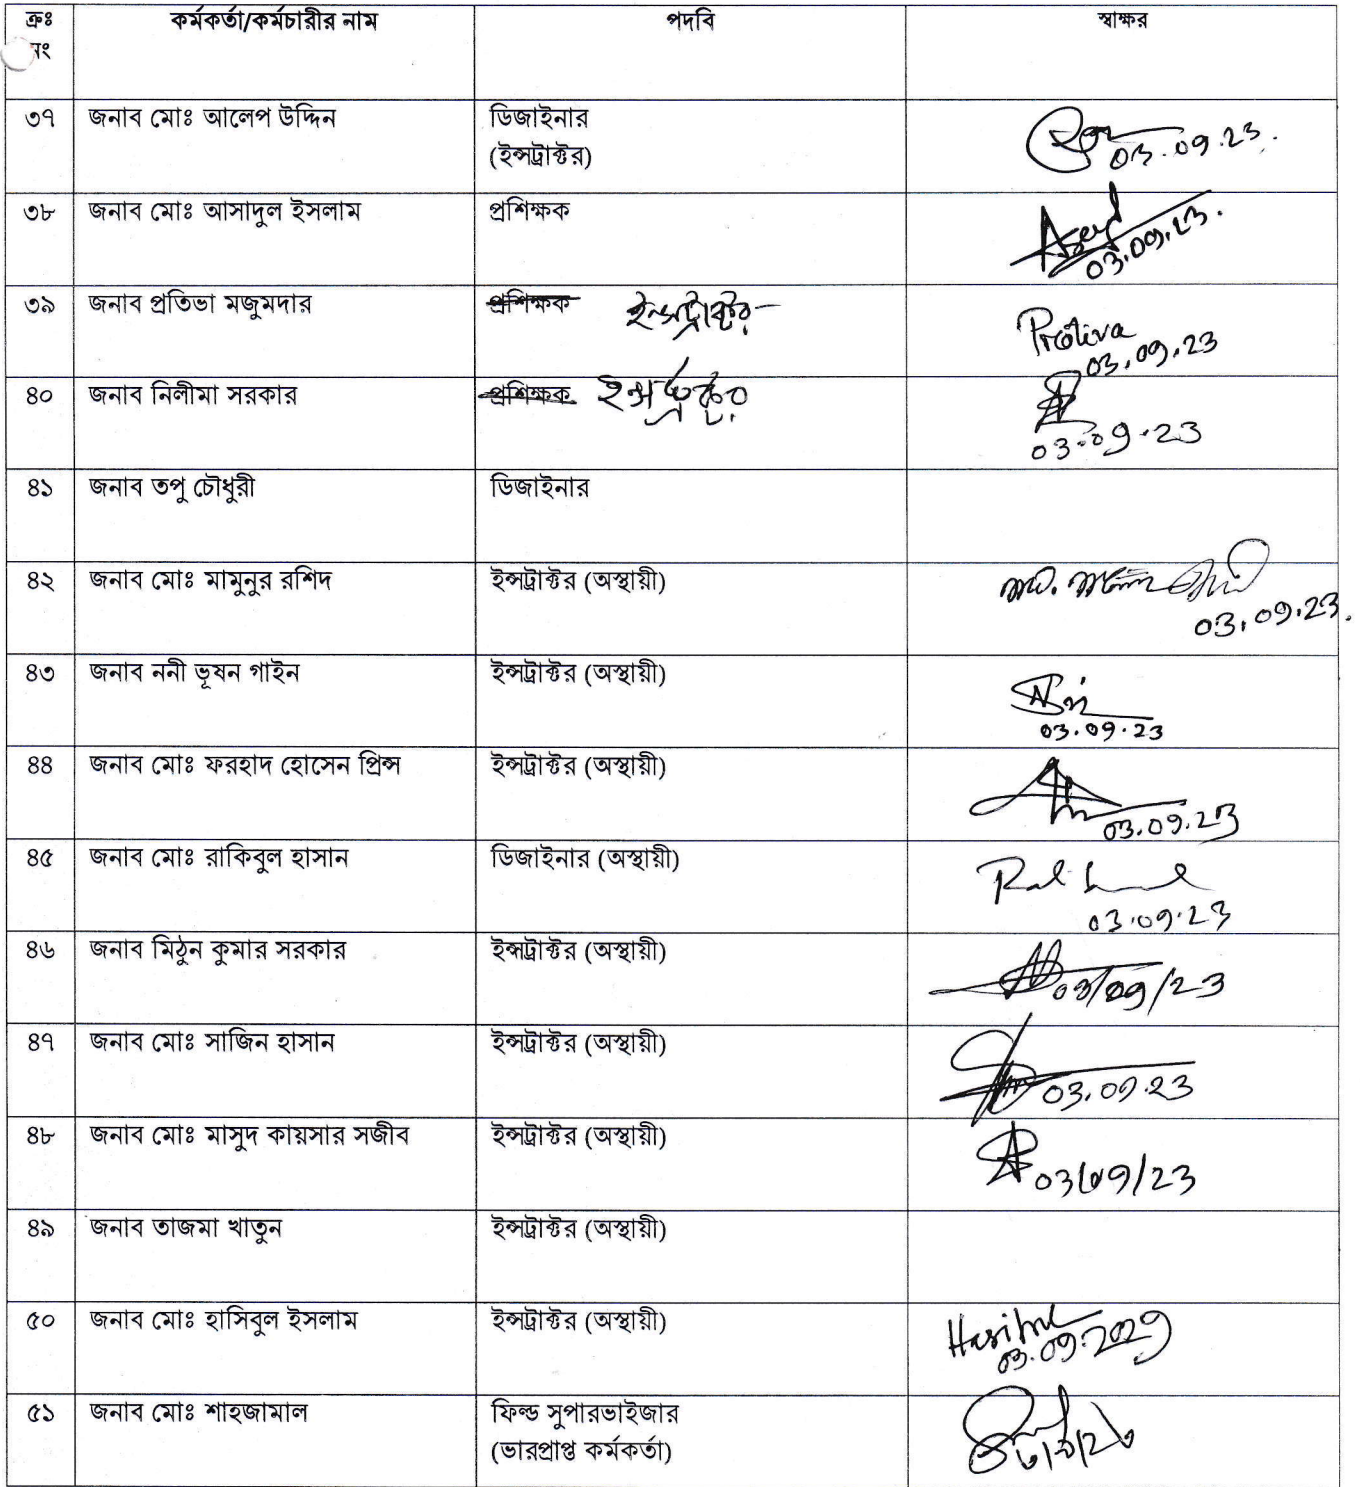 ক্রঃ নং কর্মকর্তা/কর্মচারীর নাম পদবি স্বাক্ষর
৩৭ জনাব মোঃ আলেপ উদ্দিন ডিজাইনার
(ইন্সট্রাক্টর) 03.09.23.
৩৮ জনাব মোঃ আসাদুল ইসলাম প্রশিক্ষক
03.09.23.
৩৯ জনাব প্রতিভা মজুমদার প্রশিক্ষক ইন্সট্রাক্টর Protiva
03.09.23
৪০ জনাব নিলীমা সরকার প্রশিক্ষক ইন্সট্রাক্টর
03.09.23
৪১ জনাব তপু চৌধুরী ডিজাইনার
৪২ জনাব মোঃ মামুনুর রশিদ ইন্সট্রাক্টর (অস্থায়ী)
03.09.23.
৪৩ জনাব ননী ভূষন গাইন ইন্সট্রাক্টর (অস্থায়ী)
03.09.23
৪৪ জনাব মোঃ ফরহাদ হোসেন প্রিন্স ইন্সট্রাক্টর (অস্থায়ী)
03.09.23
৪৫ জনাব মোঃ রাকিবুল হাসান ডিজাইনার (অস্থায়ী)
03.09.23
৪৬ জনাব মিঠুন কুমার সরকার ইন্সট্রাক্টর (অস্থায়ী)
03/09/23
৪৭ জনাব মোঃ সাজিন হাসান ইন্সট্রাক্টর (অস্থায়ী)
03.09.23
৪৮ জনাব মোঃ মাসুদ কায়সার সজীব ইন্সট্রাক্টর (অস্থায়ী)
03/09/23
৪৯ জনাব তাজমা খাতুন ইন্সট্রাক্টর (অস্থায়ী)
৫০ জনাব মোঃ হাসিবুল ইসলাম ইন্সট্রাক্টর (অস্থায়ী)
03.09.2023
৫১ জনাব মোঃ শাহজামাল ফিল্ড সুপারভাইজার
(ভারপ্রাপ্ত কর্মকর্তা)